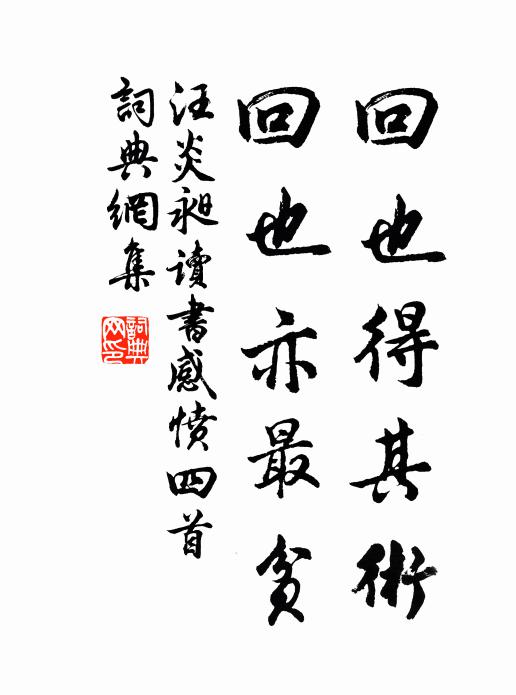 回也得其術
回也亦最貧
汪炎昶讀書感憤四首
詞典網集
詞典
网印